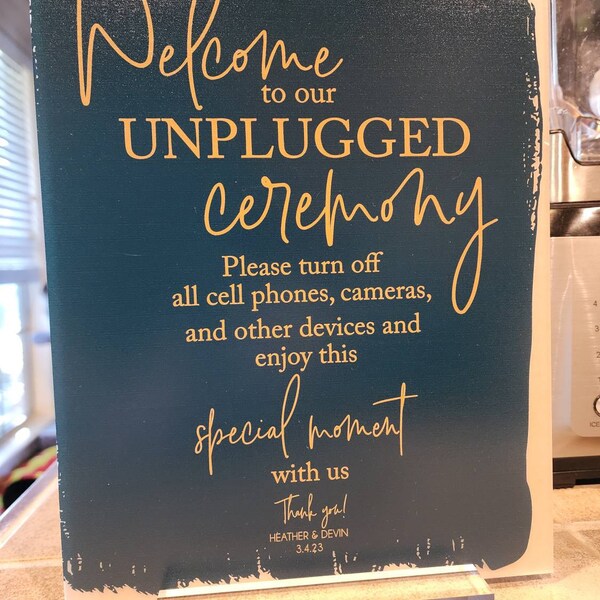 Welcome
to our
UNPLUGGED
ceremony
Please turn off
all cell phones, cameras,
and other devices and
enjoy this
special moment
with us
Thank you!
HEATHER & DEVIN
3.4.23